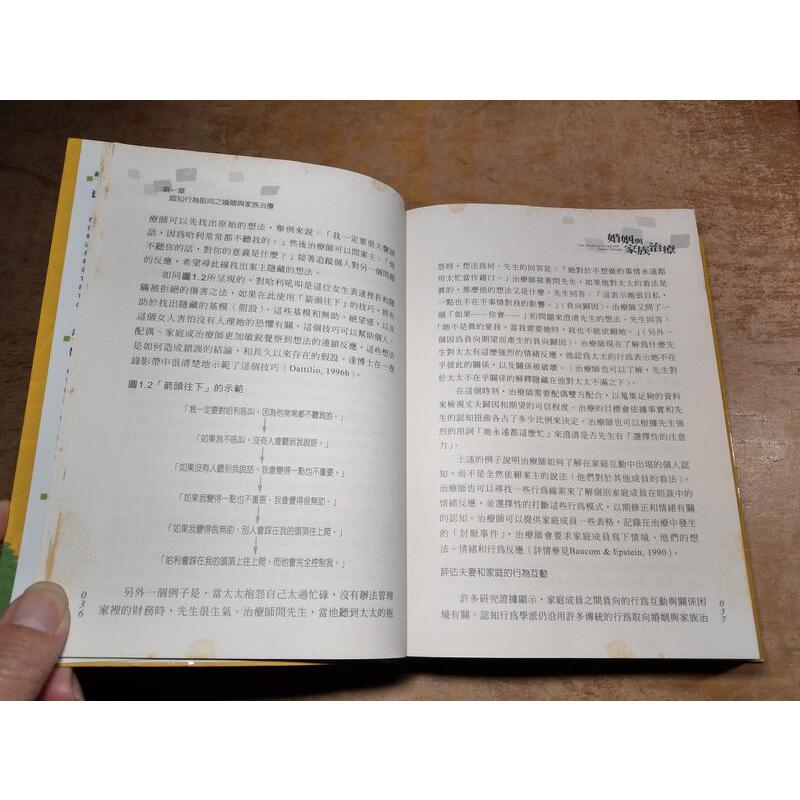 第一章
認知行為取向之婚姻與家族治療
療師可以先找出原始的想法，舉例來說：「我一定要很大聲說
話，因爲哈利常常都不聽我的。」然後治療師可以問案主：「他
不聽你的話，對你的意義是什麼？」接著追蹤個人對另一個問題
的反應，希望尋此線找出案主隱藏的想法。
如同圖1.2所呈現的，對哈利吼叫是這位女生表達挫折和隱
瞞被拒絕的傷害之法，如果在此使用「箭頭往下」的技巧，將有
助於找出隱藏的基模（假設）。這些基模和無助、絕望感，以及
這個女人害怕沒有人理她的恐懼有關。這個技巧可以幫助個人、
配偶、家庭或治療師更加敏銳覺察到想法的連鎖反應，這些想法
是如何造成錯誤的結論，和長久以來存在的假設。達博士在一卷
錄影帶中很清楚地示範了這個技巧（Dattilio, 1996b）。
圖1.2「箭頭往下」的示範
「我一定要對哈利吼叫，因為他常常都不聽我的。」
「如果我不吼叫，沒有人會聽到我說話。」
「如果沒有人聽到我說話，我會變得一點也不重要。」
「如果我變得一點也不重要，我會覺得很無助。」
「如果我變得很無助，別人會踩在我的頭頂往上爬。」
「哈利會踩在我的頭頂上往上爬，而他會完全控制我。」
另外一個例子是，當太太抱怨自己太過忙碌，沒有辦法管理
家裡的財務時，先生很生氣。治療師問先生，當他聽到太太的抱
036
婚姻與
家族治療
怨時，想法爲何。先生的回答是：「她對於不想做的事情永遠都
用太忙當作藉口。」治療師接著問先生，如果他對太太的看法是
眞的，那麼他的想法又是什麼。先生回答：「這表示她很自私，
一點也不在乎事情對我的影響。」（負向歸因）。治療師又問了一
個「如果⋯⋯你會⋯⋯」的問題來澄清先生的想法。先生回答：
「她不是眞的愛我，當我需要她時，我也不能依賴她。」（另外一
個因爲負向期望而產生的負向歸因）。治療師現在了解爲什麼先
生對太太有這麼強烈的情緒反應，他認爲太太的行爲表示她不在
乎彼此的關係，以及關係被破壞。（治療師也可以了解，先生對
於太太不在乎關係的解釋隱藏在他對太太不滿之下）。
在這個時刻，治療師需要配偶雙方配合，以蒐集足夠的資料
來檢視丈夫歸因和期望的可信程度。治療的目標會依據事實和先
生的認知扭曲各占了多少比例來決定。治療師也可以根據先生強
烈的用詞「她永遠都這麼忙」來澄清是否先生有「選擇性的注意
力」。
上述的例子說明治療師如何了解在家庭互動中出現的個人認
知，而不是全然依賴案主的說法（他們對於其他成員的看法）。
治療師也可以尋找一些行爲線索來了解個別家庭成員在晤談中的
情緒反應，並選擇性的打斷這些行爲模式，以期修正和情緒有關
的認知。治療師可以提供家庭成員一些表格，記錄在治療中發生
的「討厭事件」，治療師會要求家庭成員寫下情境、他們的想
法、情緒和行爲反應（詳情參見Baucom & Epstein, 1990）。
評估夫妻和家庭的行為互動
許多研究證據顯示，家庭成員之間負向的行爲互動與關係困
境有關。認知行爲學派仍沿用許多傳統的行爲取向婚姻與家族治
037